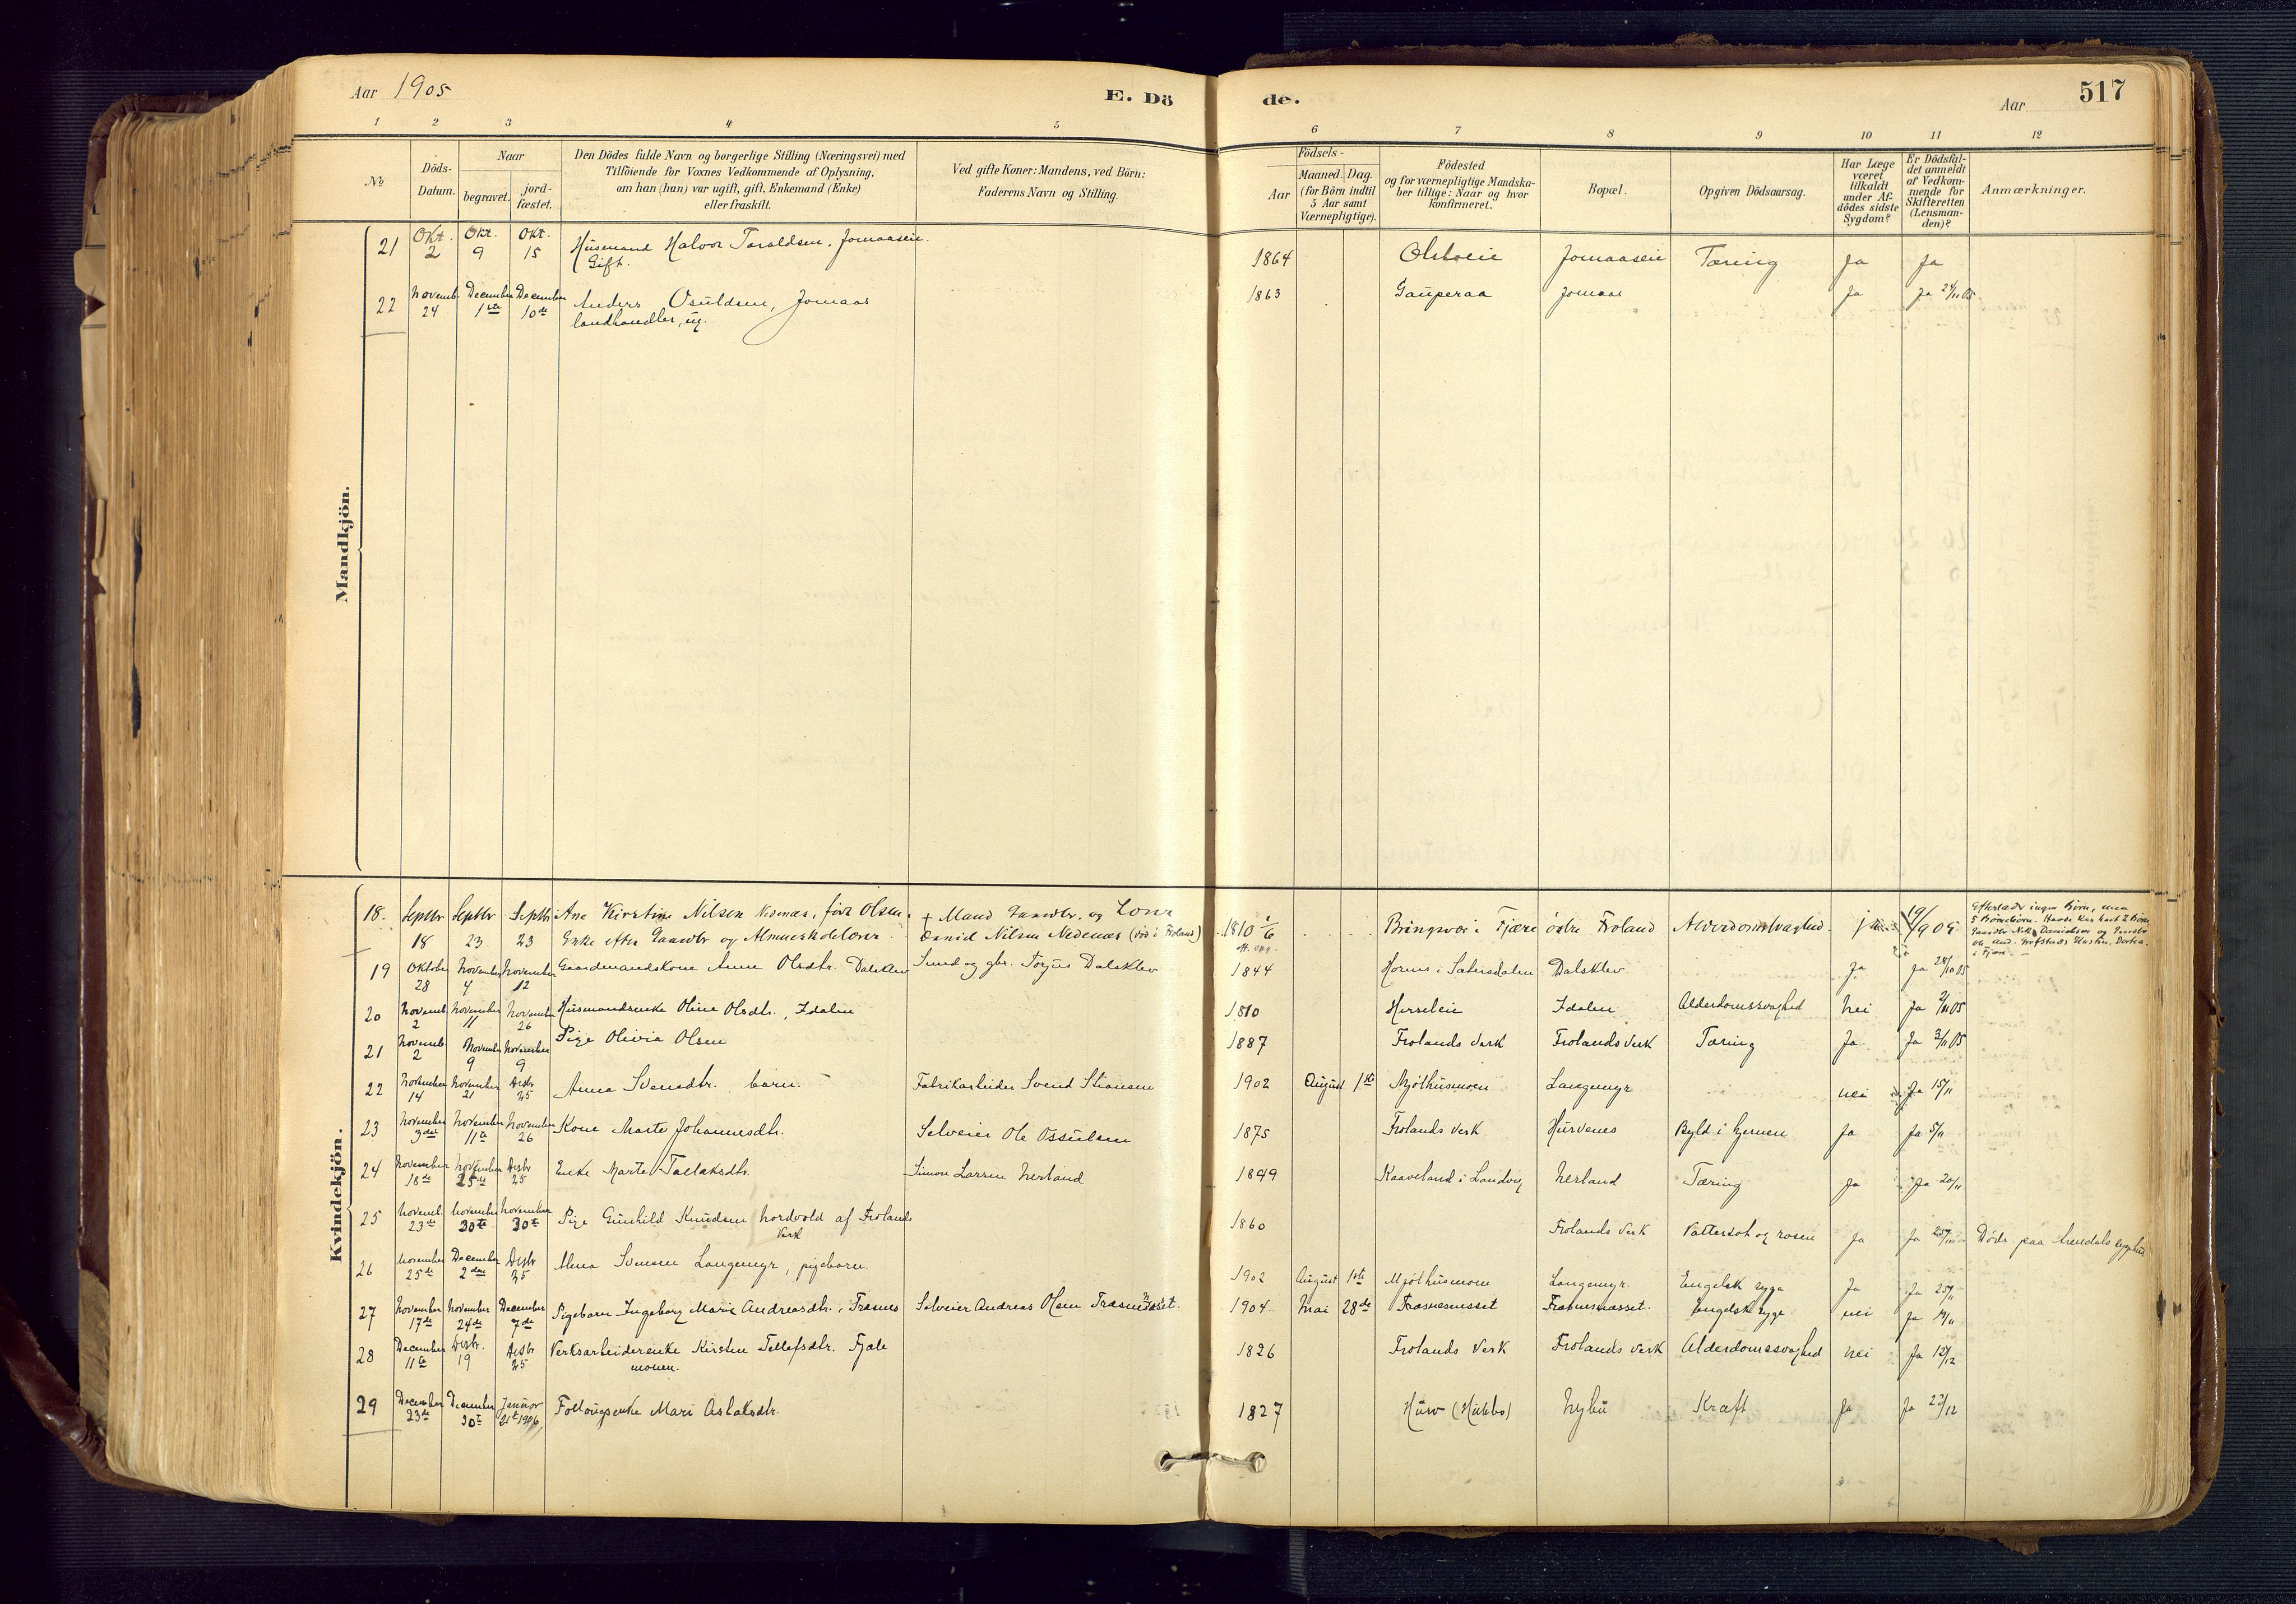 Aar 1905
E. Dö
de.
Aar
517
1 2 3 4 5 6 7 8 9 10 11 12
No
Döds-
Datum.
Naar
begravet.
jord-
fæstet.
Den Dödes fulde Navn og borgerlige Stilling (Næringsvei) med
Tilföiende for Voxnes Vedkommende af Oplysning,
om han (hun) var ugift, gift, Enkemand (Enke)
eller fraskilt.
Ved gifte Koner: Mandens, ved Börn:
Faderens Navn og Stilling.
Födsels-
Aar
Maaned. Dag.
(for Börn indtil
5 Aar samt
Værnepligtige).
Födested
og for værnepligtige Mandska-
ber tillige: Naar og hvor
konfirmeret.
Bopæl.
Opgiven Dödsaarsag.
Har Læge
været
tilkaldt
under Af-
dödes sidste
Sygdom?
Er Dödsfal-
det anmeldt
af Vedkom-
mende for
Skifteretten
(Lensman-
den)?
Anmærkninger.
Mandkjön.
21 Okt. 2 Okt. 9 Okt. 15 Husmand Halvor Taraldsen, Jomaaseie. 1864 Jomaaseie Tæring Ja Ja
Gift.
22 Novemb. 24 December 1ste December 10de Anders Osuldsen, Jomaas 1863 Gauperaa Jomaas Ja Ja 24/11 05
landhandler, ug.
Kvindekjön.
18. Septbr 18 Septbr 23 Septbr 23 Ane Kirstine Nilsen Nedenæs, född Olsen. + Mand Gaardbr. og 1810 1/6 Bringsvær i Fjære östre Froland Alderdomssvaghed. 19/9 05
Enke efter Gaardbr og Daniel Nilsen Nedenæs (död i Froland)
19 Oktober 28 November 4 November 12 Gaardmandskone Anne Olsdtr. Dalsklev Smed og gbr. Torjus Dalsklev 1844 Hornes i Sætersdalen Dalsklev Ja Ja 28/10 05
20 Novemb. 2 November 11 November 26 Husmandsenke Oline Olsdtr., Idalen 1810 Idalen Alderdomssvaghed Nei Ja 2/11 05
21 Novemb. 2 November 9 November 9 Pige Olivia Olsen 1887 Frolands Verk Frolands Verk Tæring Ja Ja 3/11 05
22 November 14 November 21 Desbr 25 Anna Svensdtr. barn. Fabrikarbeider Svend Stiansen 1902 August 1ste Mjölhusmoen Langemyr nei Ja 15/11
23 November 3die November 11te November 26 Kone Marte Johannesdtr. Selveier Ole Ossulsen 1875 Frolands Verk Hurvenes Byld i hjernen Ja Ja 5/11
24 November 18de November 25de Desbr 25 Enke Marte Tallaksdtr. Simon Larsen Nerland 1849 Kaaveland i Landvig Nerland Tæring Ja Ja 20/11
25 Novemb. 23de November 30te November 30te Pige Gunhild Knudsen Nordvold af Frolands 1860 Frolands Verk Vattersot og rosen Ja Ja Döde paa Arendals sygehus
Verk
26 November 25de December 2den Desbr 25 Alma Svensen Langemyr, pigebarn. 1902 August 1ste Mjölhusmoen Langemyr. Engelsk syge Ja Ja 25/11
27 November 17de November 24de December 7de Pigebarn Ingeborg Marie Andreasdtr., Træsnes Selveier Andreas Olsen Træsnesnesset. 1904 Mai 28de Træsnesnesset Engelsk syge nei Ja 19/11
28 December 11te Desbr. 19 Desbr 25 Verksarbeiderenke Kirsten Tellefsdtr. Fjale 1826 Frolands Verk Frolands Verk Alderdomssvaghed Nei Ja 12/12
mouen.
29 December 23de December 30te Januar 21de 1906 Fol­laugsenke Mari Aslaksdtr. 1827 Hurv Nybu Kræft Ja Ja 23/12